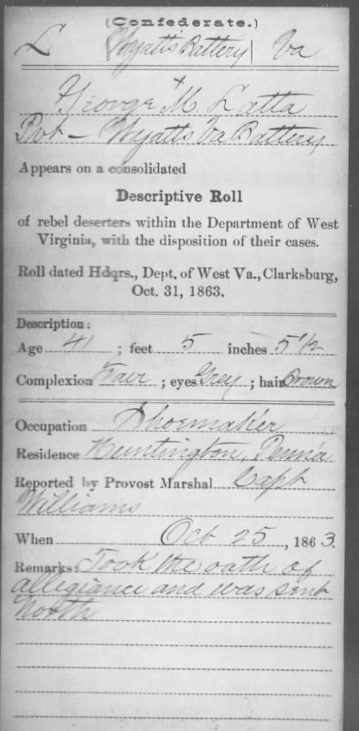 (Confederate.)
L Wyatt's Battery Va
George M. Latta
Pvt - Wyatts Va Battery
Appears on a consolidated
Descriptive Roll
of rebel deserters within the Department of West
Virginia, with the disposition of their cases.
Roll dated Hdqrs., Dept. of West Va., Clarksburg,
Oct. 31, 1863.
Description:
Age 41 ; feet 5 inches 5 1/2
Complexion Fair ; eyes Grey ; hair Brown
Occupation Shoemaker
Residence Huntington, Penna
Reported by Provost Marshal Capt
Williams
When Oct 25, 1863.
Remarks: Took the oath of
allegiance and was sent
North